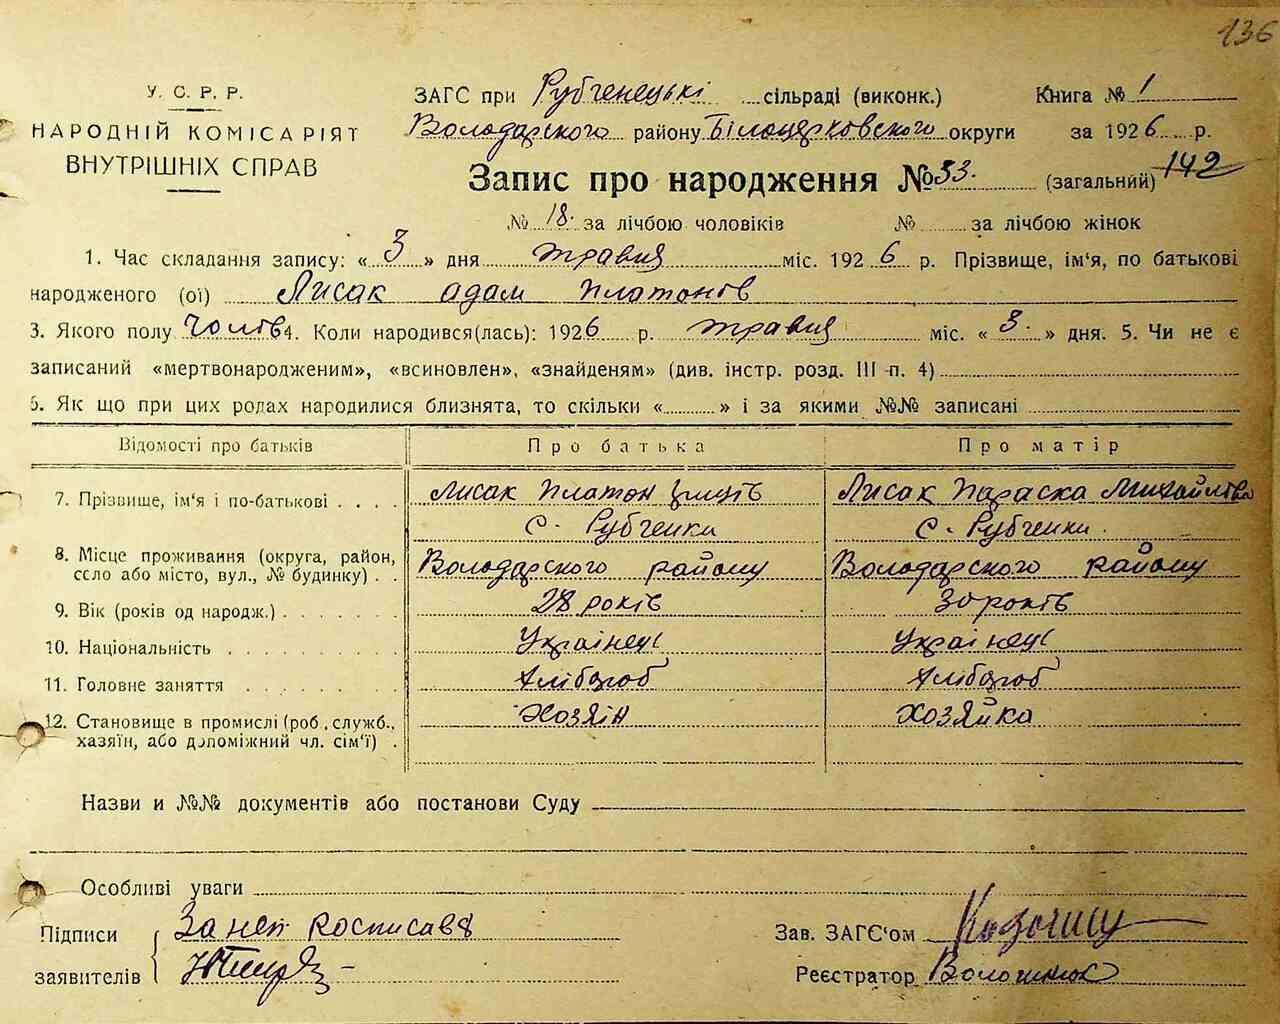 136
У. С. Р. Р.
НАРОДНІЙ КОМІСАРІЯТ
ВНУТРІШНІХ СПРАВ
ЗАГС при Рубченецькі сільраді (виконк.) Книга № 1
Володарского району Білоцерковского округи за 1926 р.
Запис про народження № 33. (загальний) 142
№ 18. за лічбою чоловіків № за лічбою жінок
1. Час складання запису: « 3 » дня травня міс. 1926 р. Прізвище, ім'я, по батькові
народженого (ої) Лисак Адам Платонів
3. Якого полу Чолов 4. Коли народився(лась): 1926 р. травня міс. « 3. » дня. 5. Чи не є
записаний «мертвонародженим», «всиновлен», «знайденям» (див. інстр. розд. III п. 4)
6. Як що при цих родах народилися близнята, то скільки « » і за якими №№ записані
Відомості про батьків Про батька Про матір
7. Прізвище, ім'я і по-батькові . . . . Лисак Платон Лисак Параска Михайлівна
с. Рубченки с. Рубченки.
8. Місце проживання (округа, район, село або місто, вул., № будинку) . . Володарского району Володарского району
9. Вік (років од народж.) . . . . . . 28 років 30 років
10. Національність . . . . . . . . . Українец Українец
11. Головне заняття . . . . . . . Хлібороб Хлібороб
12. Становище в промислі (роб., служб., хазяїн, або допоміжний чл. сім'ї) . Хозяін Хозяйка
Назви и №№ документів або постанови Суду
Особливі уваги
Підписи За неп росписавя Зав. ЗАГС'ом
заявителів Реєстратор